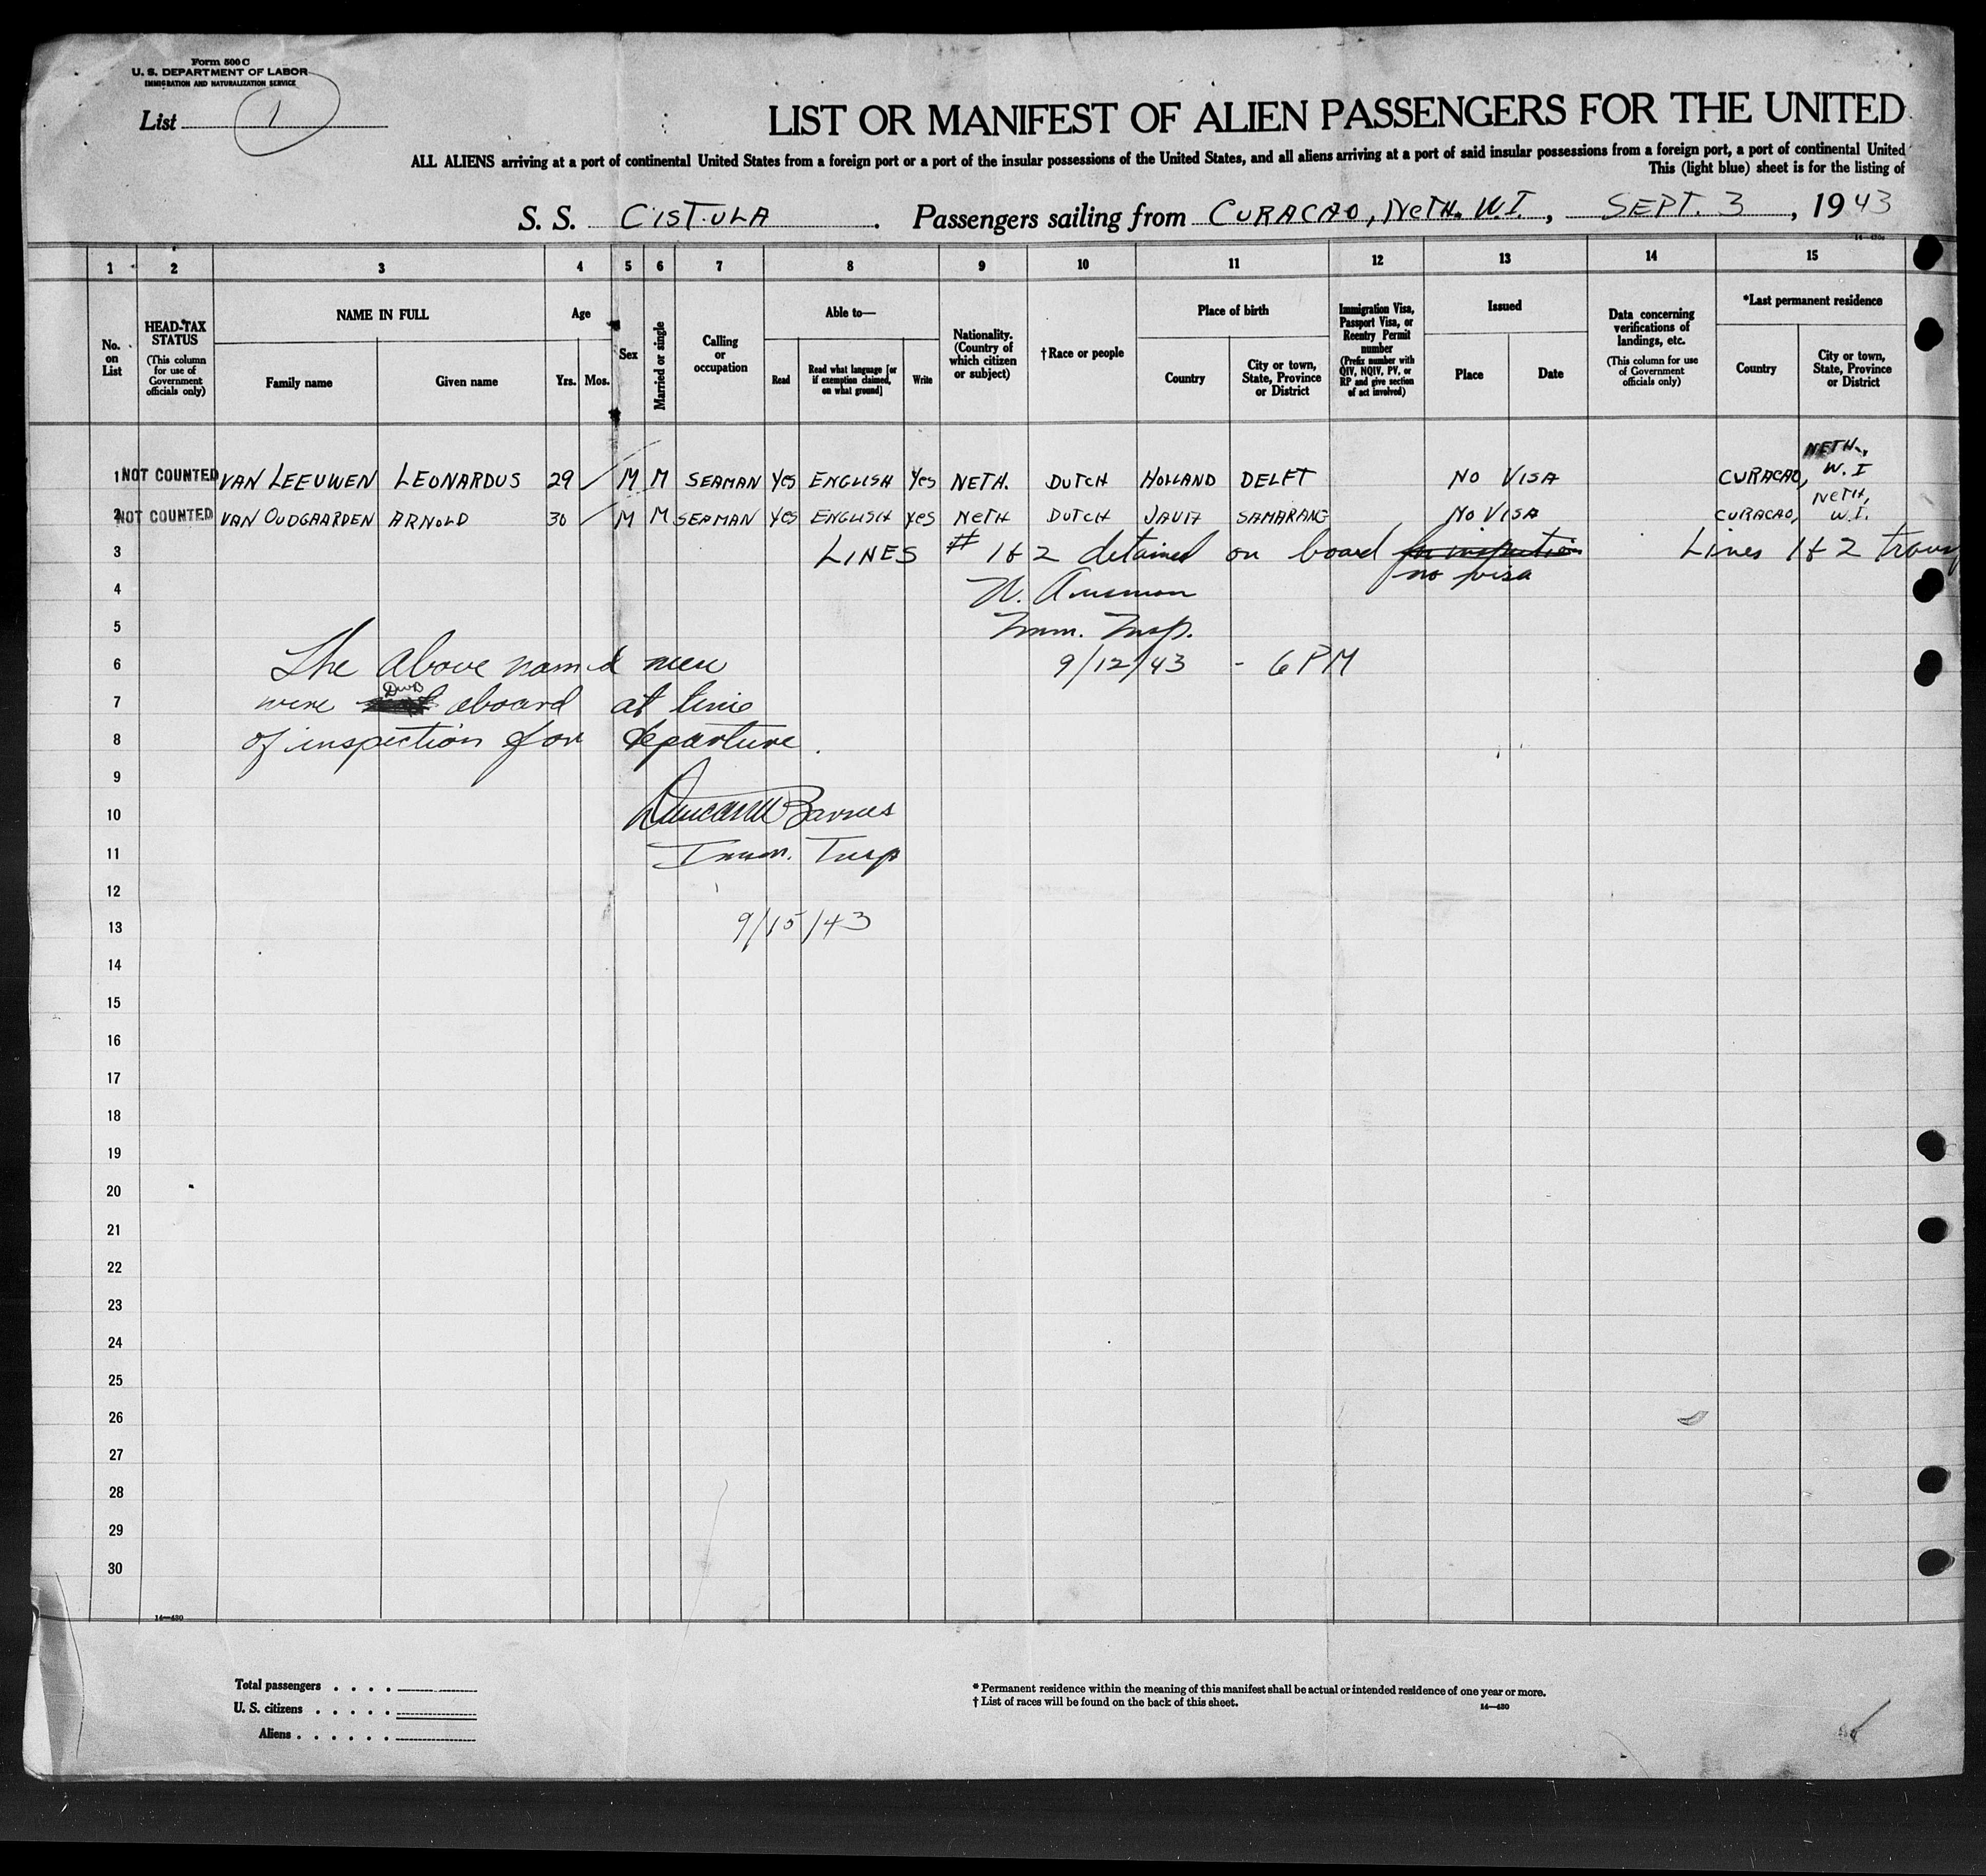 Form 500 C
U. S. DEPARTMENT OF LABOR
IMMIGRATION AND NATURALIZATION SERVICE
List 1
LIST OR MANIFEST OF ALIEN PASSENGERS FOR THE UNITED
ALL ALIENS arriving at a port of continental United States from a foreign port or a port of the insular possessions of the United States, and all aliens arriving at a port of said insular possessions from a foreign port, a port of continental United
This (light blue) sheet is for the listing of
S. S. CISTULA. Passengers sailing from CURACAO, NETH. W.I., SEPT. 3, 1943
1 2 3 4 5 6 7 8 9 10 11 12 13 14 15
No. on List
HEAD-TAX STATUS
(This column for use of Government officials only)
NAME IN FULL
Family name
Given name
Age
Yrs. Mos.
Sex
Married or single
Calling or occupation
Able to—
Read
Read what language [or if exemption claimed, on what ground]
Write
Nationality. (Country of which citizen or subject)
†Race or people
Place of birth
Country
City or town, State, Province or District
Immigration Visa, Passport Visa, or Reentry Permit number
(Prefix number with QIV, NQIV, PV, or RP and give section of act involved)
Issued
Place
Date
Data concerning verifications of landings, etc.
(This column for use of Government officials only)
*Last permanent residence
Country
City or town, State, Province or District
1 NOT COUNTED VAN LEEUWEN LEONARDUS 29 / M M SEAMAN Yes ENGLISH Yes NETH. DUTCH HOLLAND DELFT NO VISA CURACAO, NETH., W. I
2 NOT COUNTED VAN OUDGAARDEN ARNOLD 30 / M M SEAMAN Yes ENGLISH Yes NETH DUTCH JAVA SAMARANG NO VISA CURACAO, NETH, W.I.
3 LINES # 1 & 2 detained on board for inspection Lines 1 & 2
no visa
4
5 Imm. Insp.
6 The above named men 9/12/43 - 6 PM
7 were DWB aboard at time
8 of inspection for departure.
9
10 Duncan W Barnes
11 Imm. Insp
12
13 9/15/43
14
15
16
17
18
19
20
21
22
23
24
25
26
27
28
29
30
14—430
Total passengers
U. S. citizens
Aliens
* Permanent residence within the meaning of this manifest shall be actual or intended residence of one year or more.
† List of races will be found on the back of this sheet.
14—430